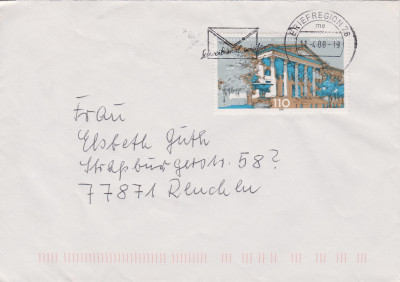 BRIEFREGION 26
mo
11.-4.00-19
110
Frau
Elsbeth Guth
Straßburgerstr. 58?
77871 Renchen